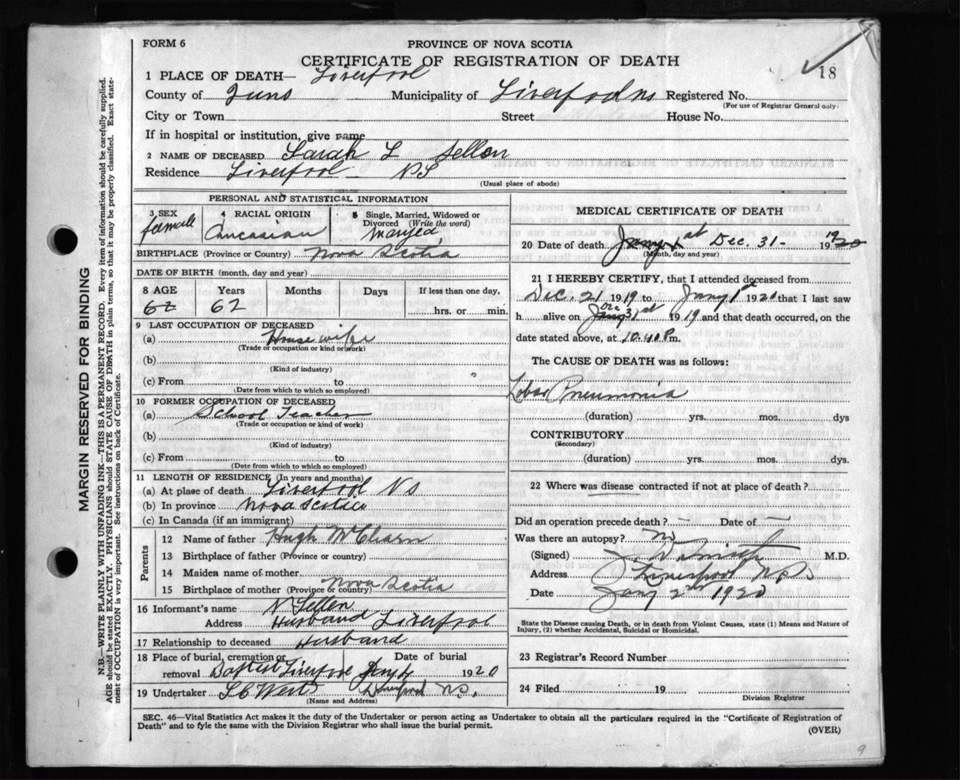 FORM 6
PROVINCE OF NOVA SCOTIA
CERTIFICATE OF REGISTRATION OF DEATH
18
1 PLACE OF DEATH— Liverpool
County of Municipality of Registered No.
(For use of Registrar General only)
City or Town Street House No.
If in hospital or institution, give name
2 NAME OF DECEASED Sarah L Sellon
Residence Liverpool N S
(Usual place of abode)
PERSONAL AND STATISTICAL INFORMATION
3 SEX female
4 RACIAL ORIGIN Caucasian
5 Single, Married, Widowed or Divorced (Write the word) Married
BIRTHPLACE (Province or Country) Nova Scotia
DATE OF BIRTH (month, day and year)
8 AGE Years Months Days If less than one day,
62 62 hrs. or min.
9 LAST OCCUPATION OF DECEASED
(a) House wife
(Trade or occupation or kind of work)
(b)
(Kind of industry)
(c) From to
(Date from which to which so employed)
10 FORMER OCCUPATION OF DECEASED
(a) School Teacher
(Trade or occupation or kind of work)
(b)
(Kind of industry)
(c) From to
(Date from which to which so employed)
11 LENGTH OF RESIDENCE (In years and months)
(a) At place of death Liverpool N S
(b) In province Nova Scotia
(c) In Canada (if an immigrant)
Parents
12 Name of father Hugh
13 Birthplace of father (Province or country)
14 Maiden name of mother
15 Birthplace of mother (Province or country) Nova Scotia
16 Informant's name N Sellen
Address Husband Liverpool
17 Relationship to deceased Husband
18 Place of burial, cremation or Date of burial
removal Baptist Liverpool Jany 1920
19 Undertaker Liverpool N.S.
(Name and Address)
MEDICAL CERTIFICATE OF DEATH
20 Date of death, Dec. 31 - 1920
(Month, day and year)
21 I HEREBY CERTIFY, that I attended deceased from
Dec. 21 1919 to Jany 1st 1920 that I last saw
h alive on Dec 31st 1919 and that death occurred, on the
date stated above, at 10.40 P.m.
The CAUSE OF DEATH was as follows:
Lobar Pneumonia
(duration) yrs. mos. dys
CONTRIBUTORY
(Secondary)
(duration) yrs. mos. dys.
22 Where was disease contracted if not at place of death?
Did an operation precede death? — Date of —
Was there an autopsy? No
(Signed) Smith M.D.
Address Liverpool N.S.
Date Jany 2nd 1920
State the Disease causing Death, or in death from Violent Causes, state (1) Means and Nature of
Injury, (2) whether Accidental, Suicidal or Homicidal.
23 Registrar's Record Number
24 Filed 19
Division Registrar
SEC. 46—Vital Statistics Act makes it the duty of the Undertaker or person acting as Undertaker to obtain all the particulars required in the "Certificate of Registration of
Death" and to fyle the same with the Division Registrar who shall issue the burial permit.
(OVER)
9
MARGIN RESERVED FOR BINDING
N.B.—WRITE PLAINLY WITH UNFADING INK—THIS IS A PERMANENT RECORD. Every item of information should be carefully supplied.
AGE should be stated EXACTLY. PHYSICIANS should STATE CAUSE OF DEATH in plain terms, so that it may be properly classified. Exact state-
ment of OCCUPATION is very important. See instructions on back of Certificate.